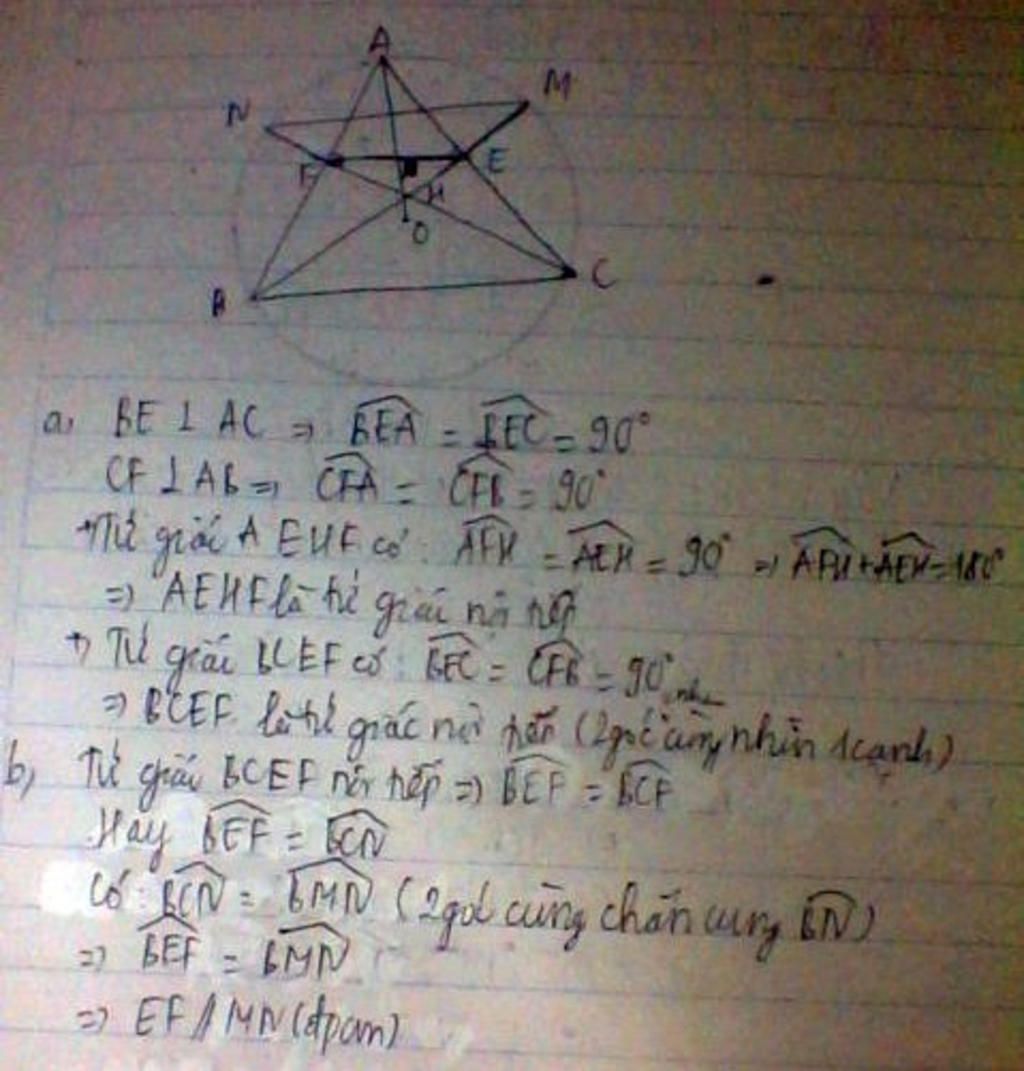 A
N
M
F
E
H
O
B
C
a, BE ⊥ AC ⇒ \widehat{BEA} = \widehat{BEC} = 90°
CF ⊥ AB ⇒ \widehat{CFA} = \widehat{CFB} = 90°
+ Tứ giác AEHF có: \widehat{AFH} = \widehat{AEH} = 90° ⇒ \widehat{AFH} + \widehat{AEH} = 180°
⇒ AEHF là tứ giác nội tiếp
+, Tứ giác BCEF có: \widehat{BEC} = \widehat{CFB} = 90°
⇒ BCEF là tứ giác nội tiếp (2 góc cùng nhìn 1 cạnh)
b, Tứ giác BCEF nội tiếp ⇒ \widehat{BEF} = \widehat{BCF}
Hay \widehat{BEF} = \widehat{BCN}
Có: \widehat{BCN} = \widehat{BMN} (2 góc cùng chắn cung \widehat{BN})
⇒ \widehat{BEF} = \widehat{BMN}
⇒ EF // MN (đpcm)